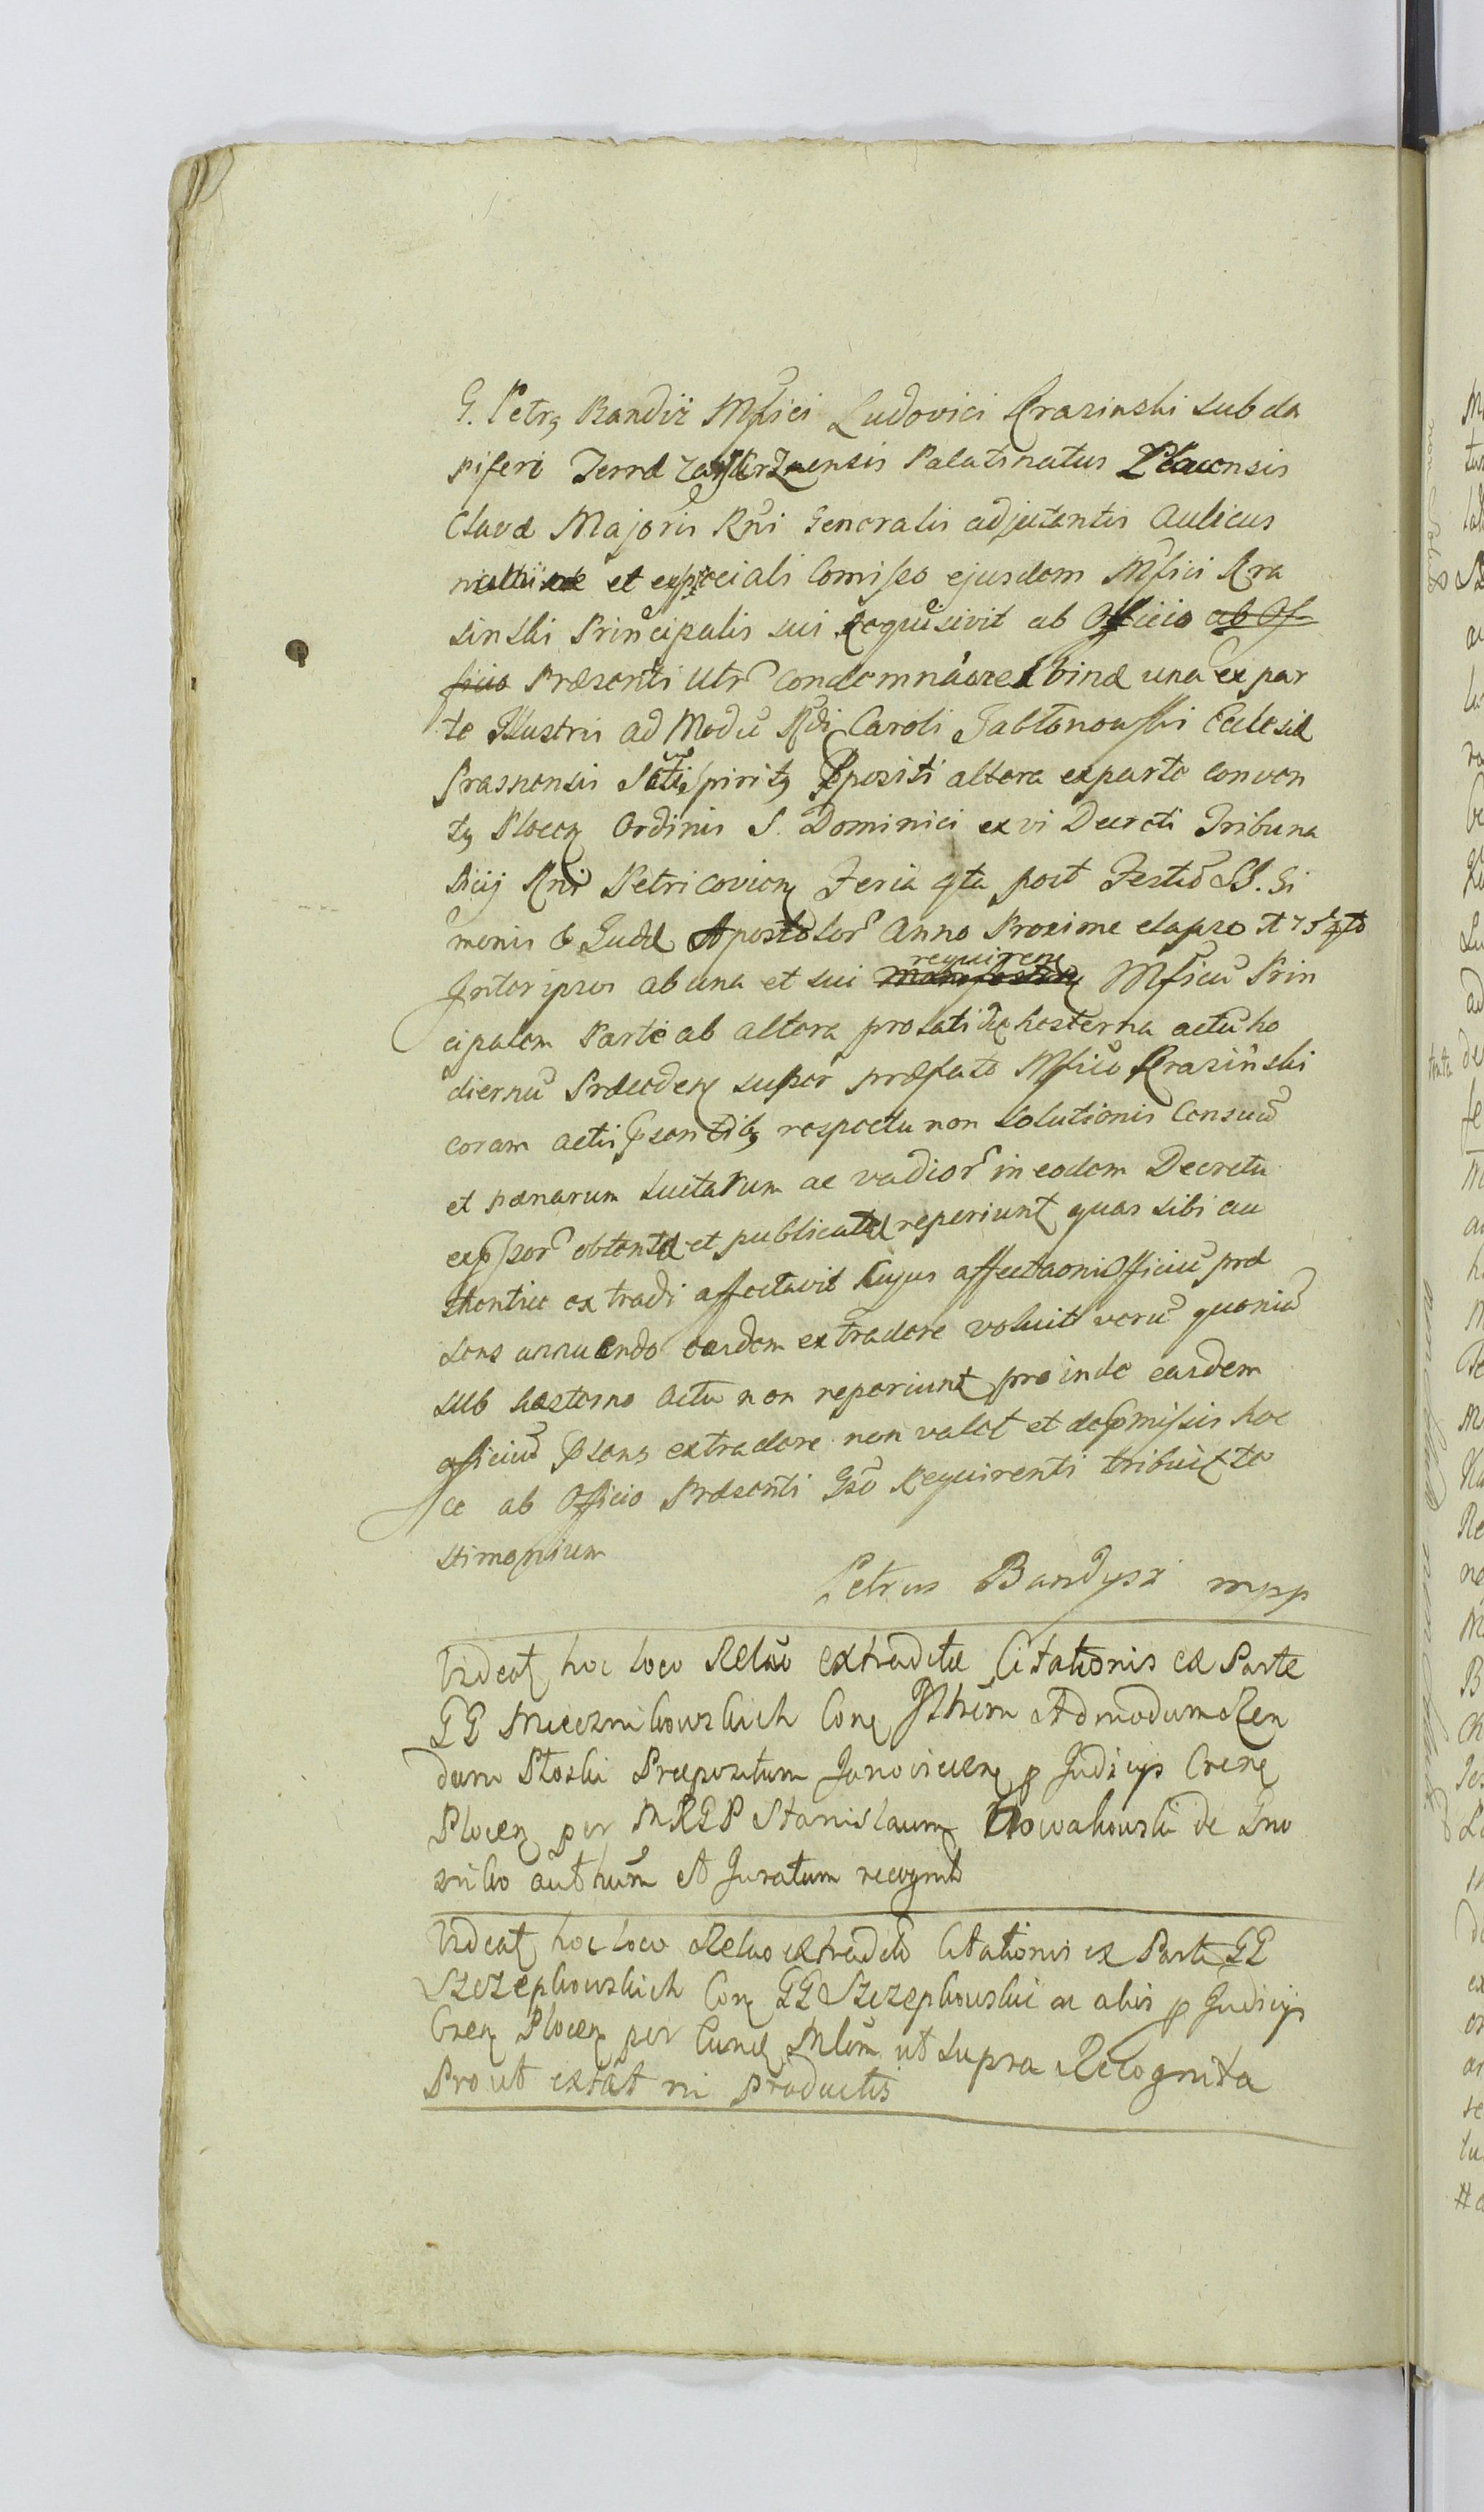 G. Petrq Bandiz Mfici Ludovici Krasinski subda
piferi Terræ Palatinatus
Clavæ Majoris Rni Generalis adjutantis Aulicus
et speciali Comisso ejusdem Mfici Kra
sinski Principalis sui requisivit ab Officio ab Of
ficio Præsenti utr condemnaões binæ una ex par
te Illustris ad Modu Rdi Caroli Jabłonowski Eclesiæ
Prasnensis Scti Spiritq Ppositi altera ex parte conven
tq Plocen Ordinis S. Dominici ex vi Decreti Tribuna
Rni Petricovien Feria 4ta post Festu SS. Si
monis & Judæ Apostolor Anno Proxime elapso 1754to
requiren
Inter ipsos ab una et sui Mficu Prin
cipalem Parte ab altera prolati hesterna actu ho
diernu Præceden super præfato Mfico Krasinski
coram actis psentibq respectu non solutionis Censuu
et pænarum luitarum ac vadior in eodem Decreto
exp̃sor obtentæ et publicatæ reperiunt quas sibi au
thentice extradi affectavit cujus affectaoni Officiu præ
sens annuendo easdem extradere voluit veru quoniu
sub hesterno actu non reperiunt proinde easdem
officiu psens extradere non valet et de pmissis hoc
ce ab Officio Præsenti Gso Requirenti tribuit te
stimonium
Petrus Bandysz mpp
Videat hoc loco Relao extraditæ Citationis ex Parte
GG Miecznikowskich Con Illrem Admodum Ren
dum Płoski Præpositum Janovicien p Judicijs Cren
Plocen per MRGP Stanislaum Nowakowski de Gno
autthum et Juratum recognit
Videat hoc loco Relao extradit Citationis ex Parte GG
Szczepkowskich Con GG Szczepkowskie ac alis p Judicijs
Cren Plocen per Eund Mlem ut supra Recognita
Prout extat in Productis